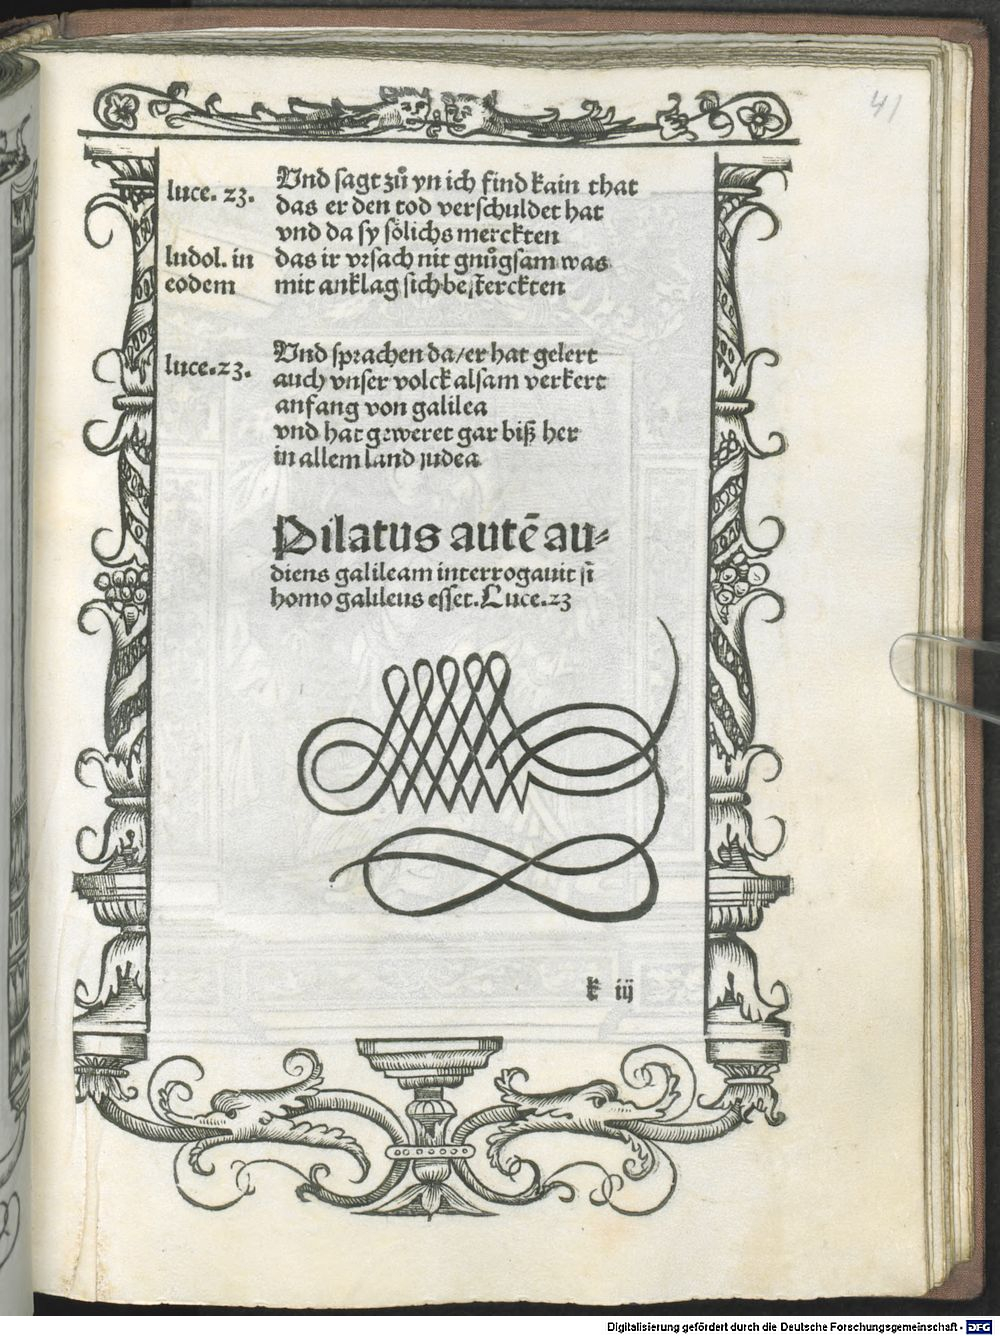 41
luce. 23.
Vnd sagt zů yn ich find kain that
das er den tod verschuldet hat
vnd da sy sölichs merckten
ludol. in
eodem
das ir vrsach nit gnůgsam was
mit anklag sich besterckten
luce. 23.
Vnd sprachen da/er hat gelert
auch vnser volck alsam verkert
anfang von galilea
vnd hat geweret gar biß her
in allem land iudea
Pilatus autē au⸗
diens galileam interrogauit si
homo galileus esset. Luce. 23
k iij
Digitalisierung gefördert durch die Deutsche Forschungsgemeinschaft - DFG